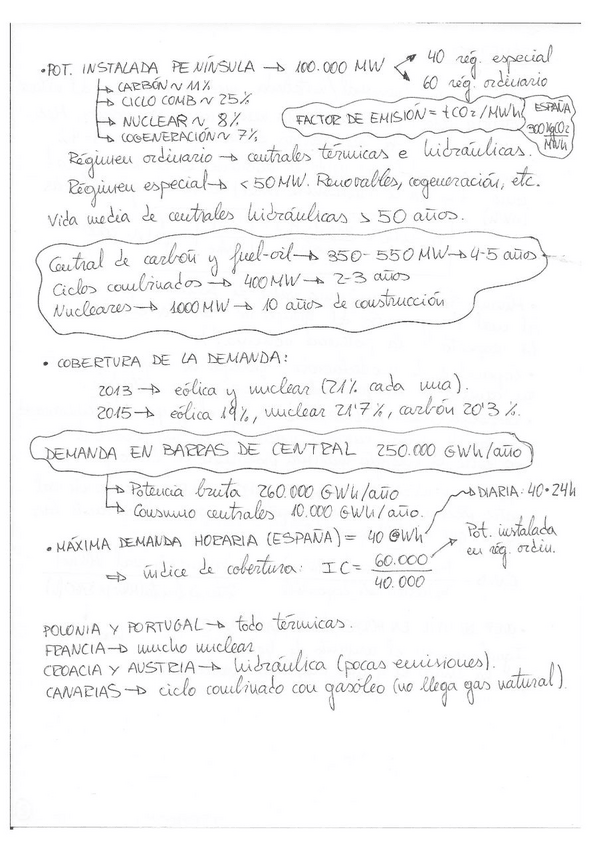 • POT. INSTALADA PENÍNSULA → 100.000 MW
40 rég. especial
60 rég. ordinario
→ CARBÓN ~ 11%
→ CICLO COMB ~ 25%
→ NUCLEAR ~ 8%
→ COGENERACIÓN ~ 7%
FACTOR DE EMISIÓN = tCO2/MWh
ESPAÑA
300 kgCO2
MWh
Régimen ordinario → centrales térmicas e hidráulicas.
Régimen especial → <50MW. Renovables, cogeneración, etc.
Vida media de centrales hidráulicas > 50 años.
Central de carbón y fuel-oil → 350-550 MW → 4-5 años
Ciclos combinados → 400MW → 2-3 años
Nucleares → 1000MW → 10 años de construcción
• COBERTURA DE LA DEMANDA:
2013 → eólica y nuclear (21% cada una).
2015 → eólica 19%, nuclear 21'7%, carbón 20'3 %.
DEMANDA EN BARRAS DE CENTRAL 250.000 GWh/año
→ Potencia bruta 260.000 GWh/año
→ Consumo centrales 10.000 GWh/año.
→ DIARIA: 40·24h
• MÁXIMA DEMANDA HORARIA (ESPAÑA) = 40 GWh
Pot. instalada
en rég. ordin.
⇒ índice de cobertura: IC = 60.000
40.000
POLONIA Y PORTUGAL → todo térmicas.
FRANCIA → mucho nuclear
CROACIA Y AUSTRIA → hidráulica (pocas emisiones).
CANARIAS → ciclo combinado con gasóleo (no llega gas natural).